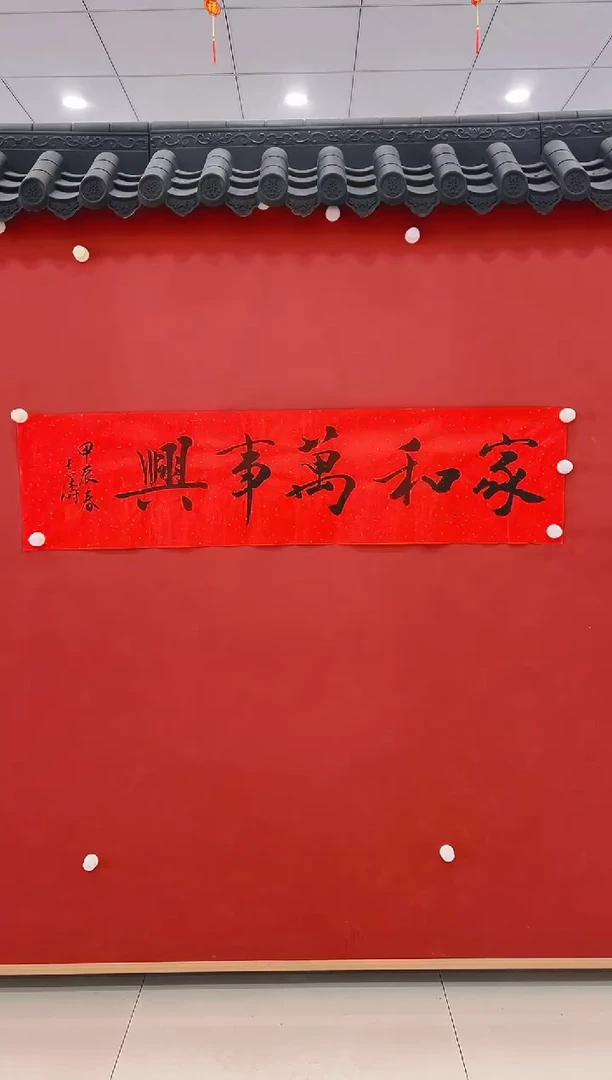 家和萬事興
甲辰春
志濤